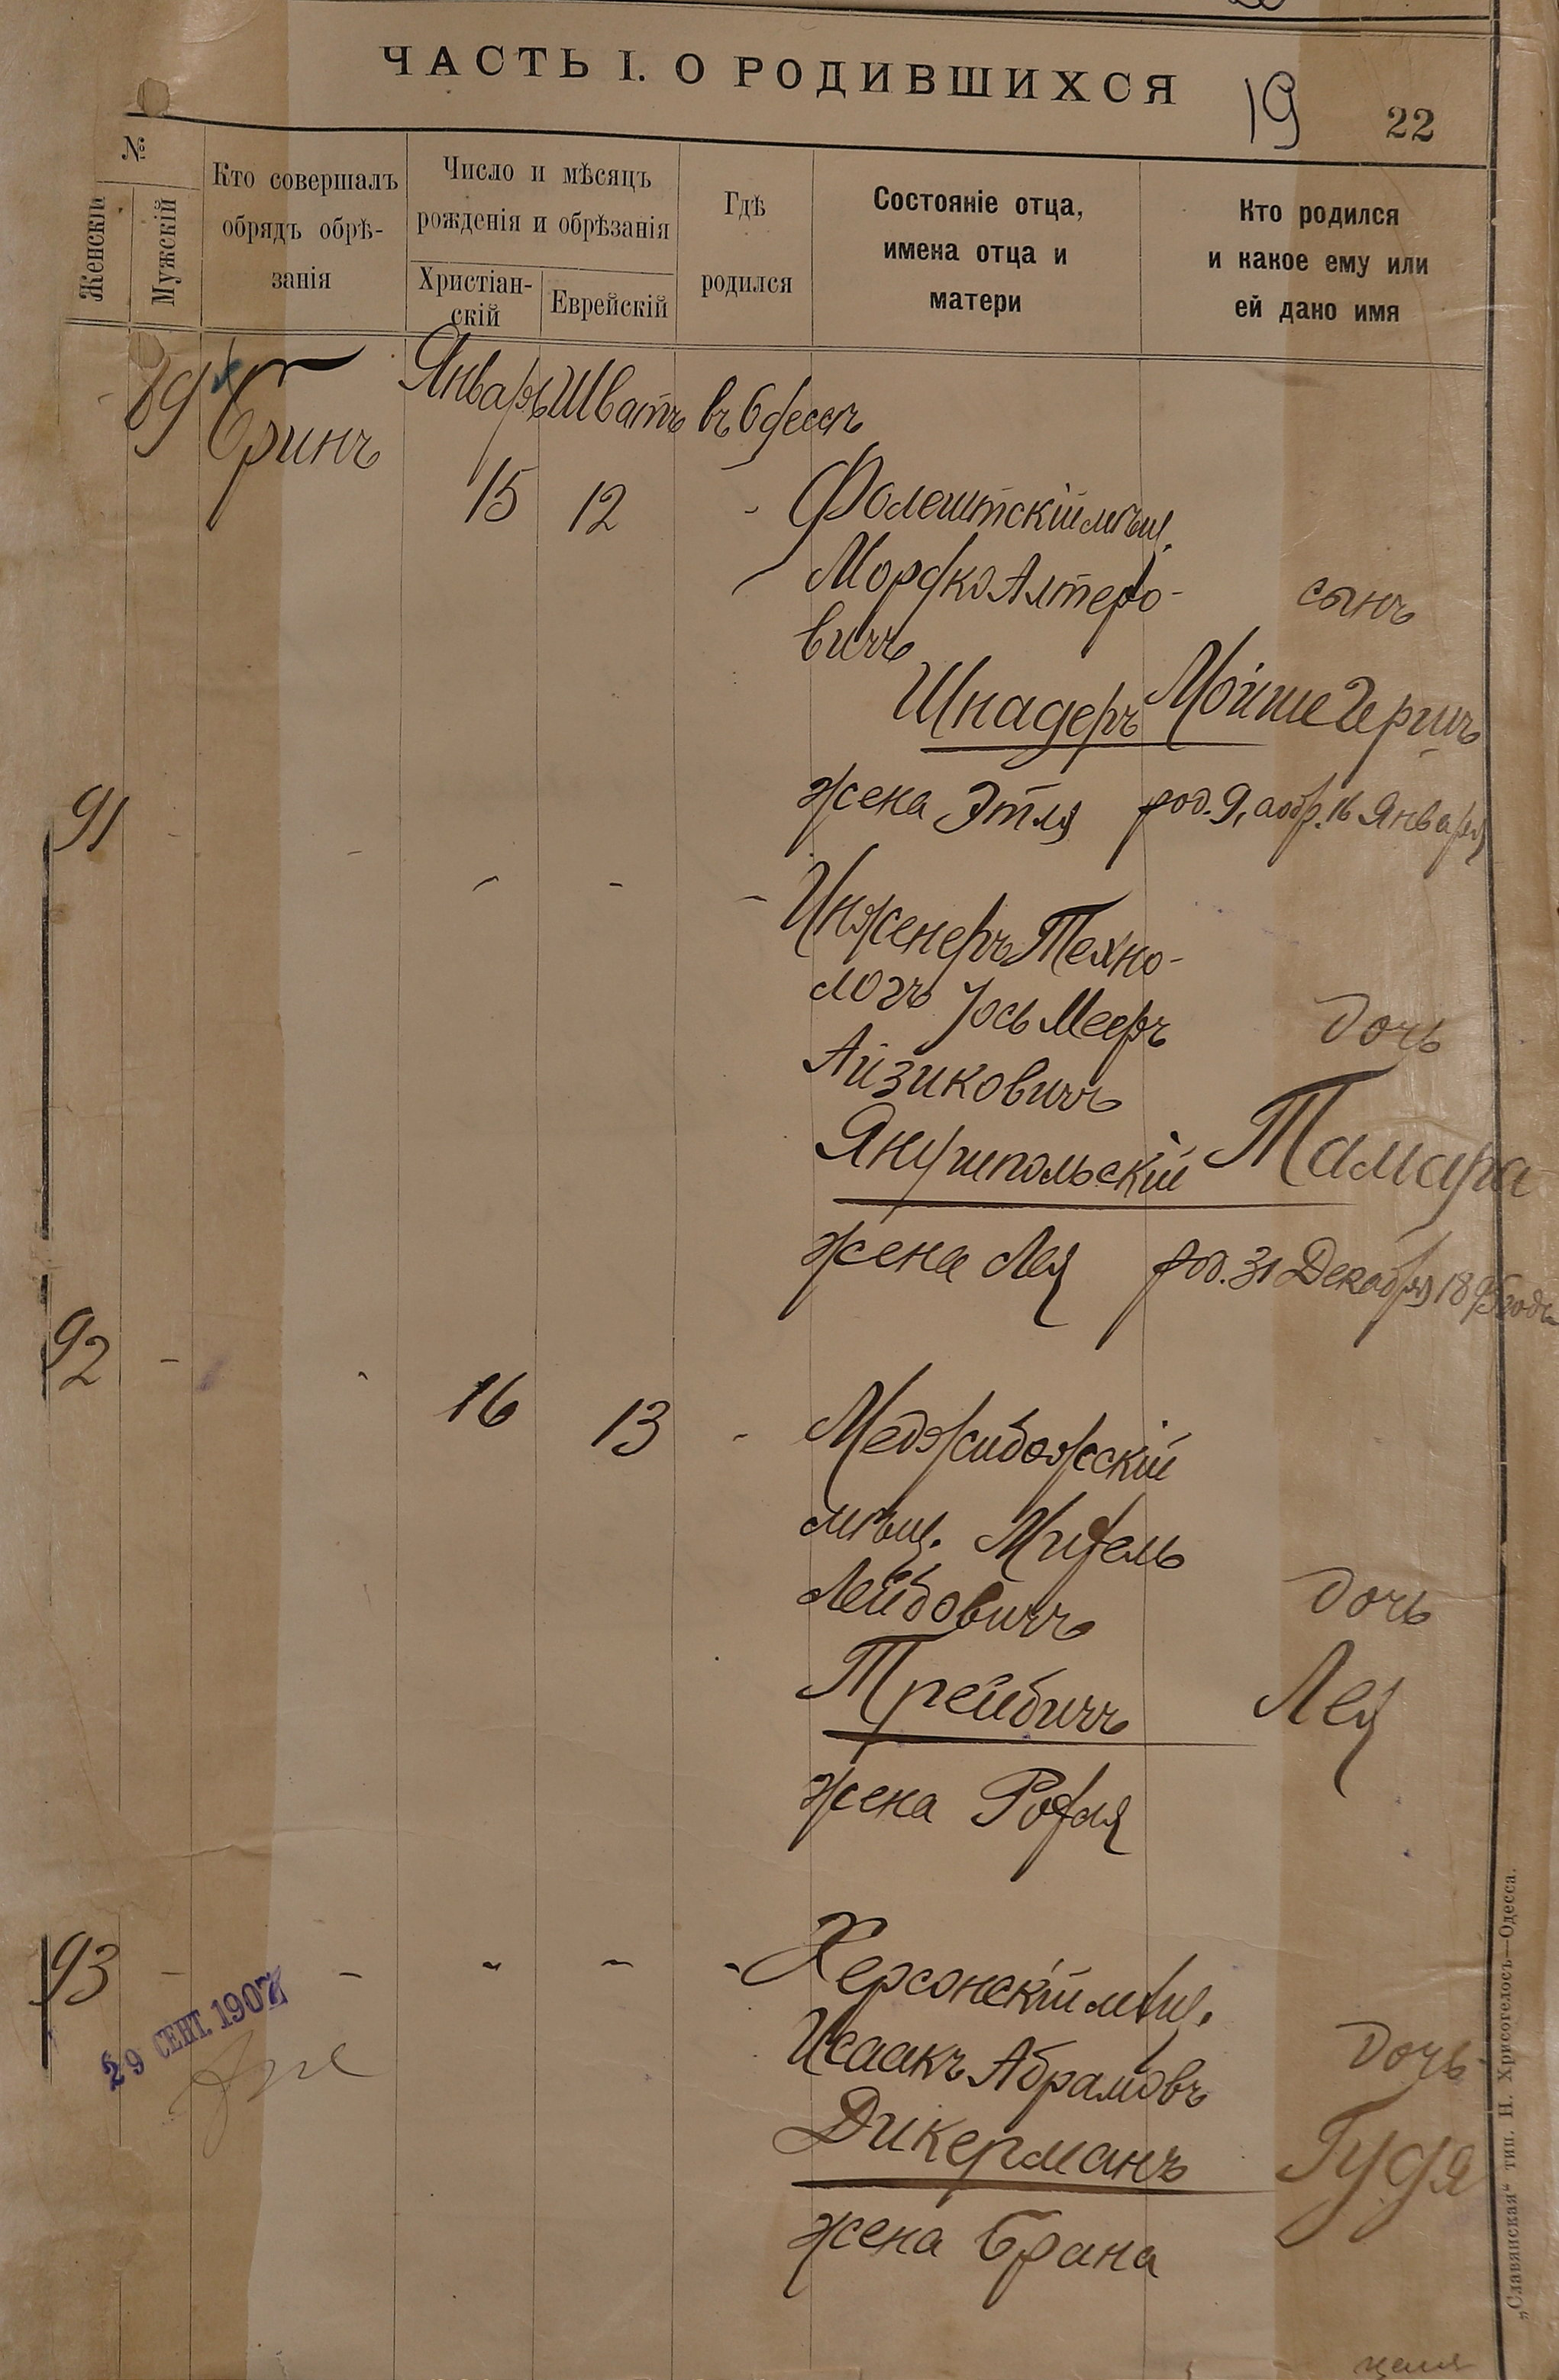 ЧАСТЬ I. О РОДИВШИХСЯ
19 22
№
Женскій
Мужскій
Кто совершалъ
обрядъ обрѣ-
занія
Число и мѣсяцъ
рожденія и обрѣзанія
Христіан-
скій
Еврейскій
Гдѣ
родился
Состояніе отца,
имена отца и
матери
Кто родился
и какое ему или
ей дано имя
89 Бринъ Январь Шватъ въ Одессѣ
15 12 - Фолештскій мѣщ.
Мордко Алтеро-
вичъ
сынъ
Шнадеръ Мойше Гершъ
жена Этля род. 9, а обр. 16 Января
91 - - - - - Инженеръ Техно-
логъ Іось Мееръ
Айзиковичъ
дочь
Янушпольскій Тамара
жена Лея род. 31 Декабря 1895 года
92 - - 16 13 - Меджибожскій
мѣщ.
Лейбовичъ
дочь
Трейбичъ Лея
жена
93 - - - - - Херсонскій мѣщ.
Исаакъ Абрамовъ
дочь
Дикерманъ Гудя
жена Брана
29 СЕНТ. 1907
„Славянская“ тип. Н. Хрисогелосъ—Одесса.